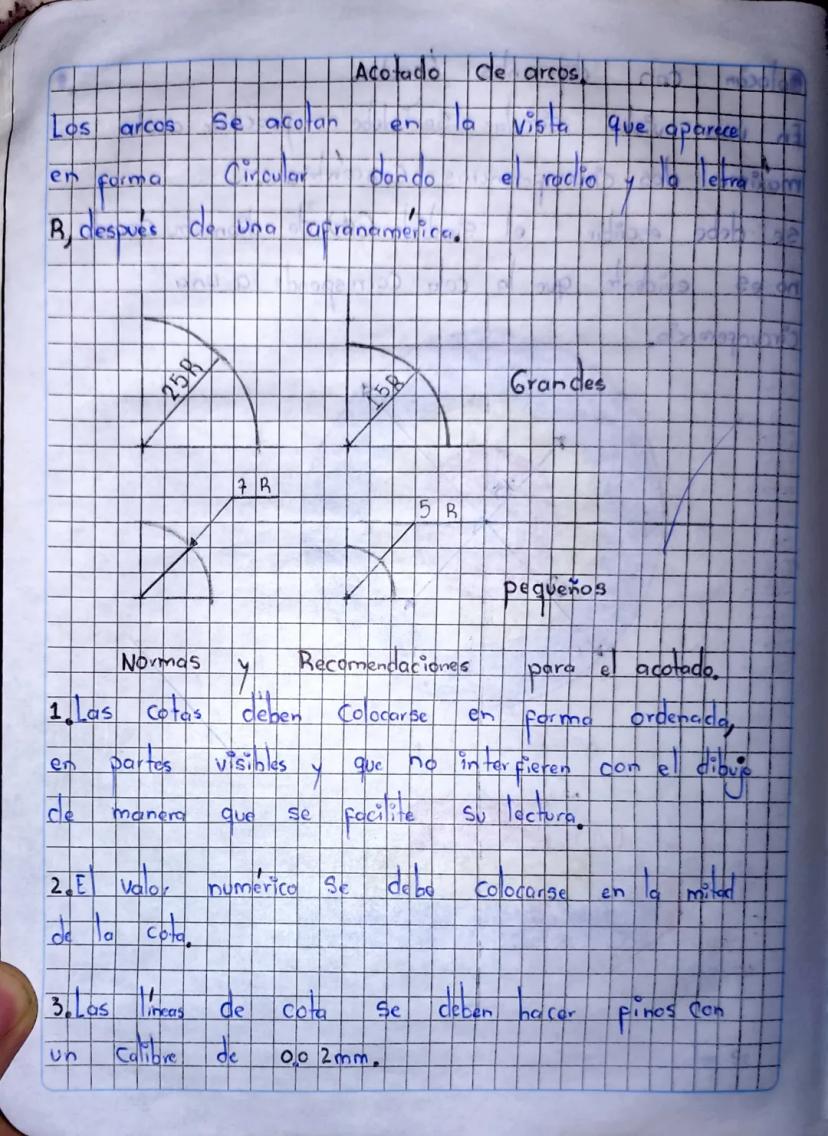 Acotado de arcos.
Los arcos se acotan en la vista que aparece
en forma Circular dando el radio y la letra
R, después de una afranamérica.
25R
15R
Grandes
7 R
5 R
pequeños
Normas y Recomendaciones para el acotado.
1. Las cotas deben Colocarse en forma ordenada,
en partes visibles y que no interfieren con el dibujo
de manera que se facilite su lectura.
2. El valor numérico se debe colocarse en la mitad
de la cota.
3. Las líneas de cota se deben hacer finos con
un calibre de 0,02mm.